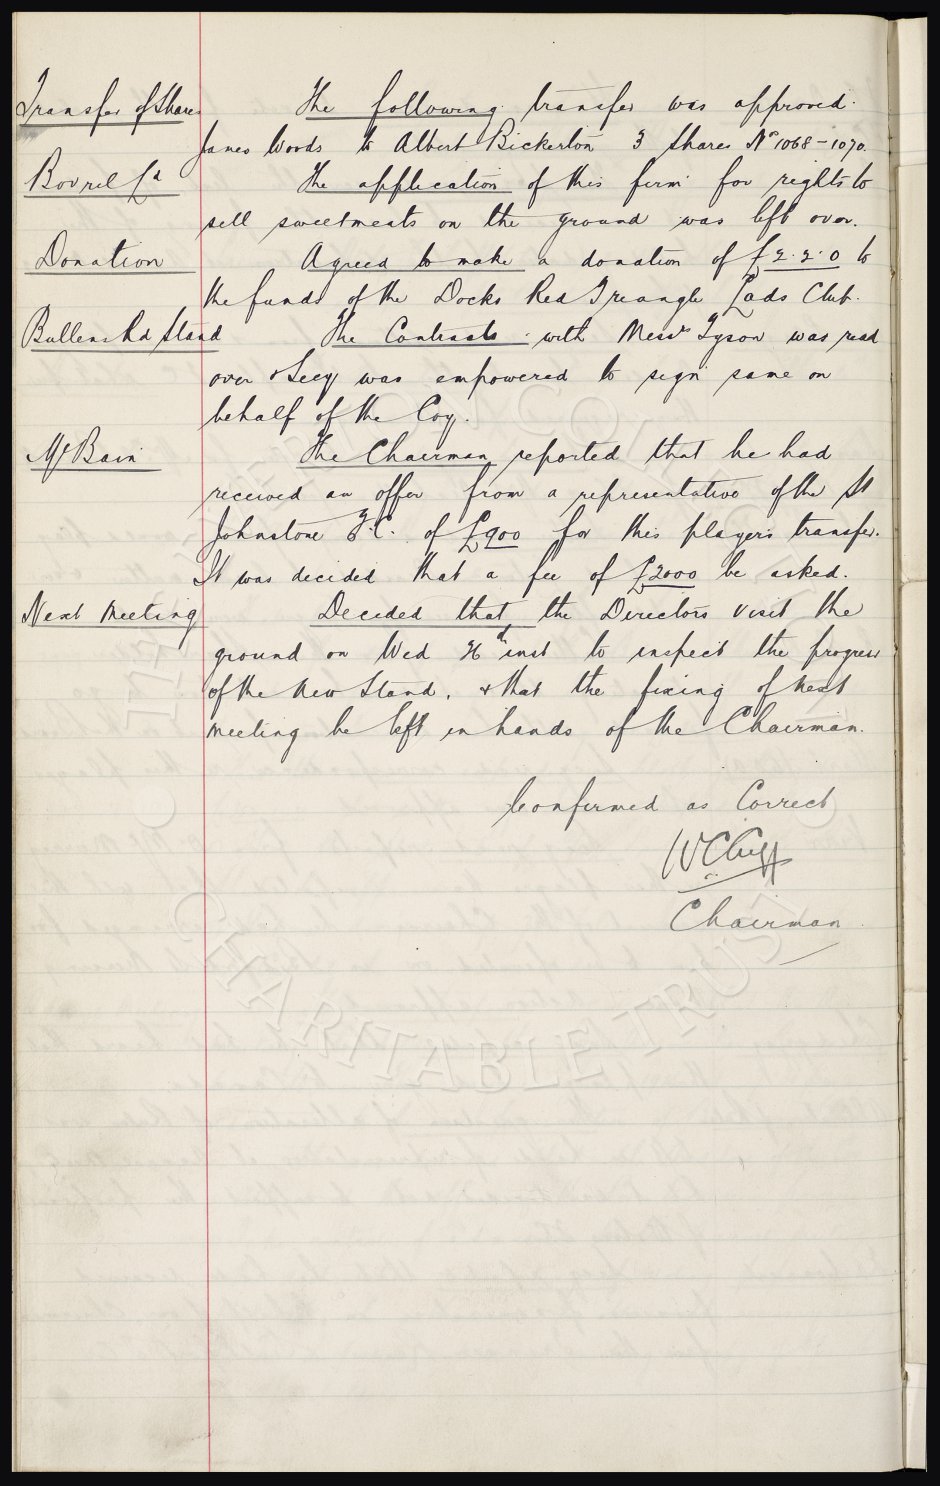 Transfer of Shares The following transfer was approved.
James Woods to Albert Bickerton 3 Shares Nº 1068-1070.
Bovril Ld The application of this firm for rights to
sell sweetmeats on the ground was left over.
Donation Agreed to make a donation of £2.2.0 to
the funds of the Docks Red Triangle Lads Club.
Bullens Rd Stand The Contracts with Messrs Tyson was read
over & Secy was empowered to sign same on
behalf of the Coy.
McBain The Chairman reported that he had
received an offer from a representative of the St
Johnstone F.C. of £900 for this player's transfer.
It was decided that a fee of £2000 be asked.
Next Meeting Decided that the Directors visit the
ground on Wed inst to inspect the progress
of the New Stand, & that the fixing of next
meeting be left in hands of the Chairman.
Confirmed as Correct
W C Cuff
Chairman
EVERTON COLLECTION
CHARITABLE TRUST